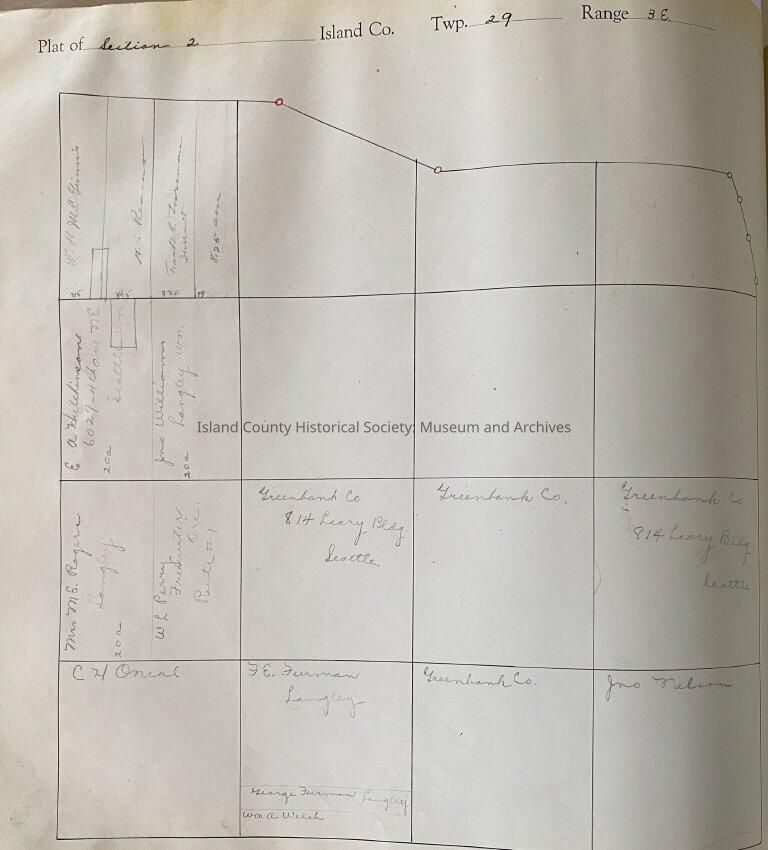 Plat of Section 2 Island Co. Twp. 29 Range 3 E.
W. H. McGinnis
Frank E. Furman
8.25 acres
E A Hutchinson
6027-4th Ave NE
Seattle Wn
20a
Jno Williams
Langley Wn.
20a
Island County Historical Society: Museum and Archives
Mrs M.E. Rogers
Langley
20a
W L Perry
Ore.
Route #1
Greenbank Co
814 Leary Bldg
Seattle
Greenbank Co.
Greenbank Co
814 Leary Bldg
Seattle
C H Oneal
F.E. Furman
Langley
George Furman Langley
Wm A Welch
Greenbank Co.
Jno Nelson